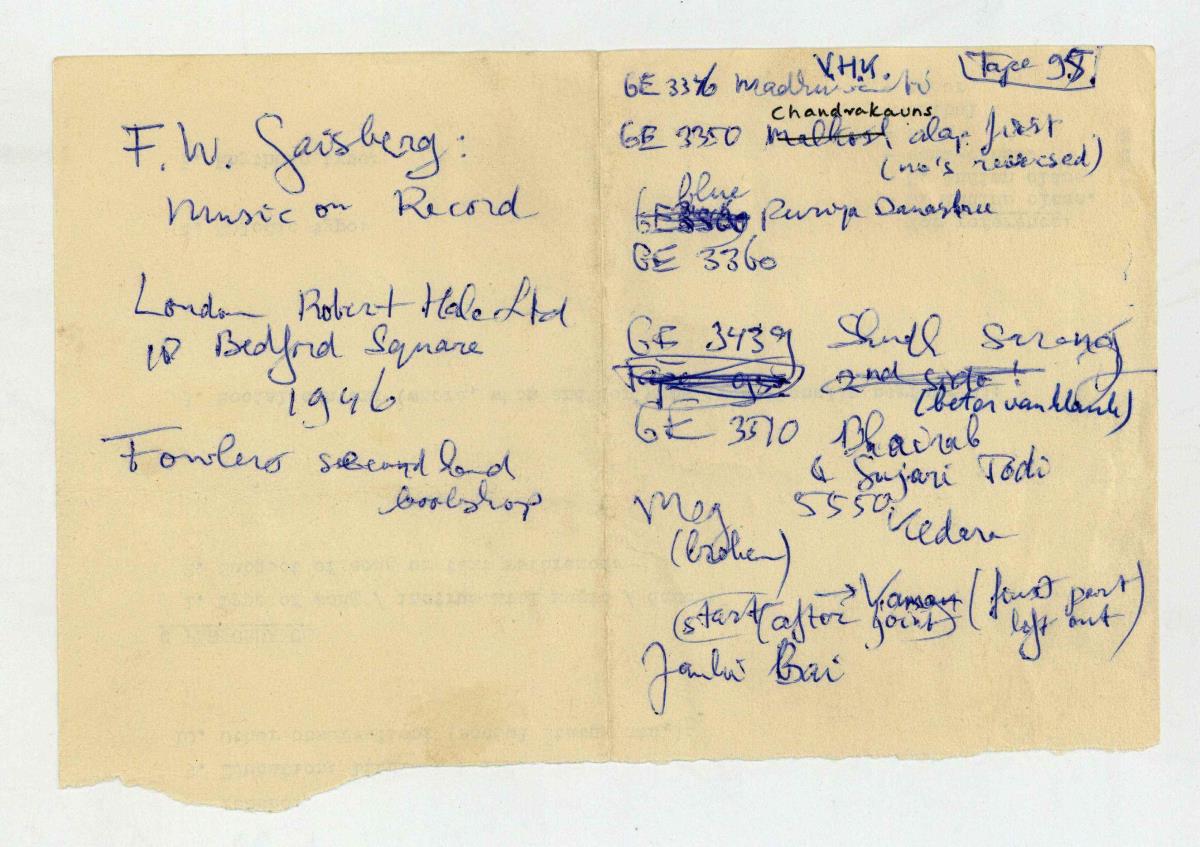 F. W. Gaisberg:
Music on Record
London Robert Hale Ltd
18 Bedford Square
1946
Fowlers second hand
bookshop
V.H.K. Tape 95
GE 3346
Chandrakauns
GE 3350 Malkosh alap first
(no's reversed)
blue
GE 3360 Puriya Danashree
GE 3360
GE 3439 Shudh Sarang
Tape 95 2nd side!
(beter van klank)
GE 3570 Bhairab
& Gujari Todi
Meg 5550: Kedara
(broken)
start (after → joint) (first part
left out)
Janki Bai